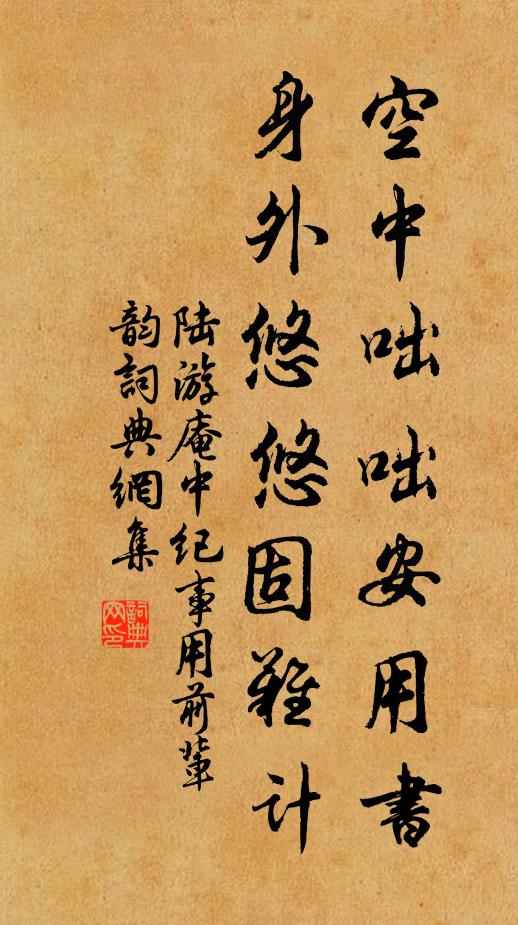 空中咄咄安用書
身外悠悠固難计
陆游庵中纪事用前輩
韵詞典網集
詞典网印